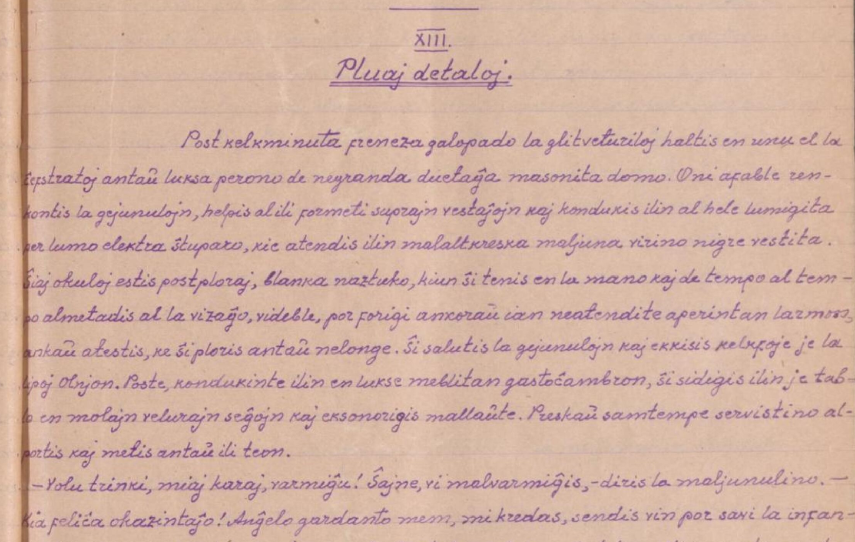 XIII.
Pluaj detaloj.
Post kelkminuta freneza galopado la glitveturiloj haltis en unu el la
ĉefstratoj antaŭ luksa perono de negranda duetaĝa masonita domo. Oni afable ren-
kontis la gejunulojn, helpis al ili formeti suprajn vestaĵojn kaj kondukis ilin al hele lumigita
per lumo elektra ŝtuparo, kie atendis ilin malaltkreska maljuna virino nigre vestita.
Ŝiaj okuloj estis postploraj, blanka naztuko, kiun ŝi tenis en la mano kaj de tempo al tem-
po almetadis al la vizaĝo, videble, por forigi ankoraŭ ian neatendite aperintan larmon,
ankaŭ atestis, ke ŝi ploris antaŭ nelonge. Ŝi salutis la gejunulojn kaj ekkisis kelkfoje je la
lipoj Olnjon. Poste, kondukinte ilin en lukse meblitan gastoĉambron, ŝi sidigis ilin je tab-
lo en molajn velurajn seĝojn kaj eksonorigis mallaŭte. Preskaŭ samtempe servistino al-
portis kaj metis antaŭ ili teon.
—Volu trinki, miaj karaj, varmiĝu! Ŝajne, vi malvarmiĝis,-diris la maljunulino.—
Kia feliĉa okazintaĵo! Anĝelo gardanto mem, mi kredas, sendis vin por savi la infan-